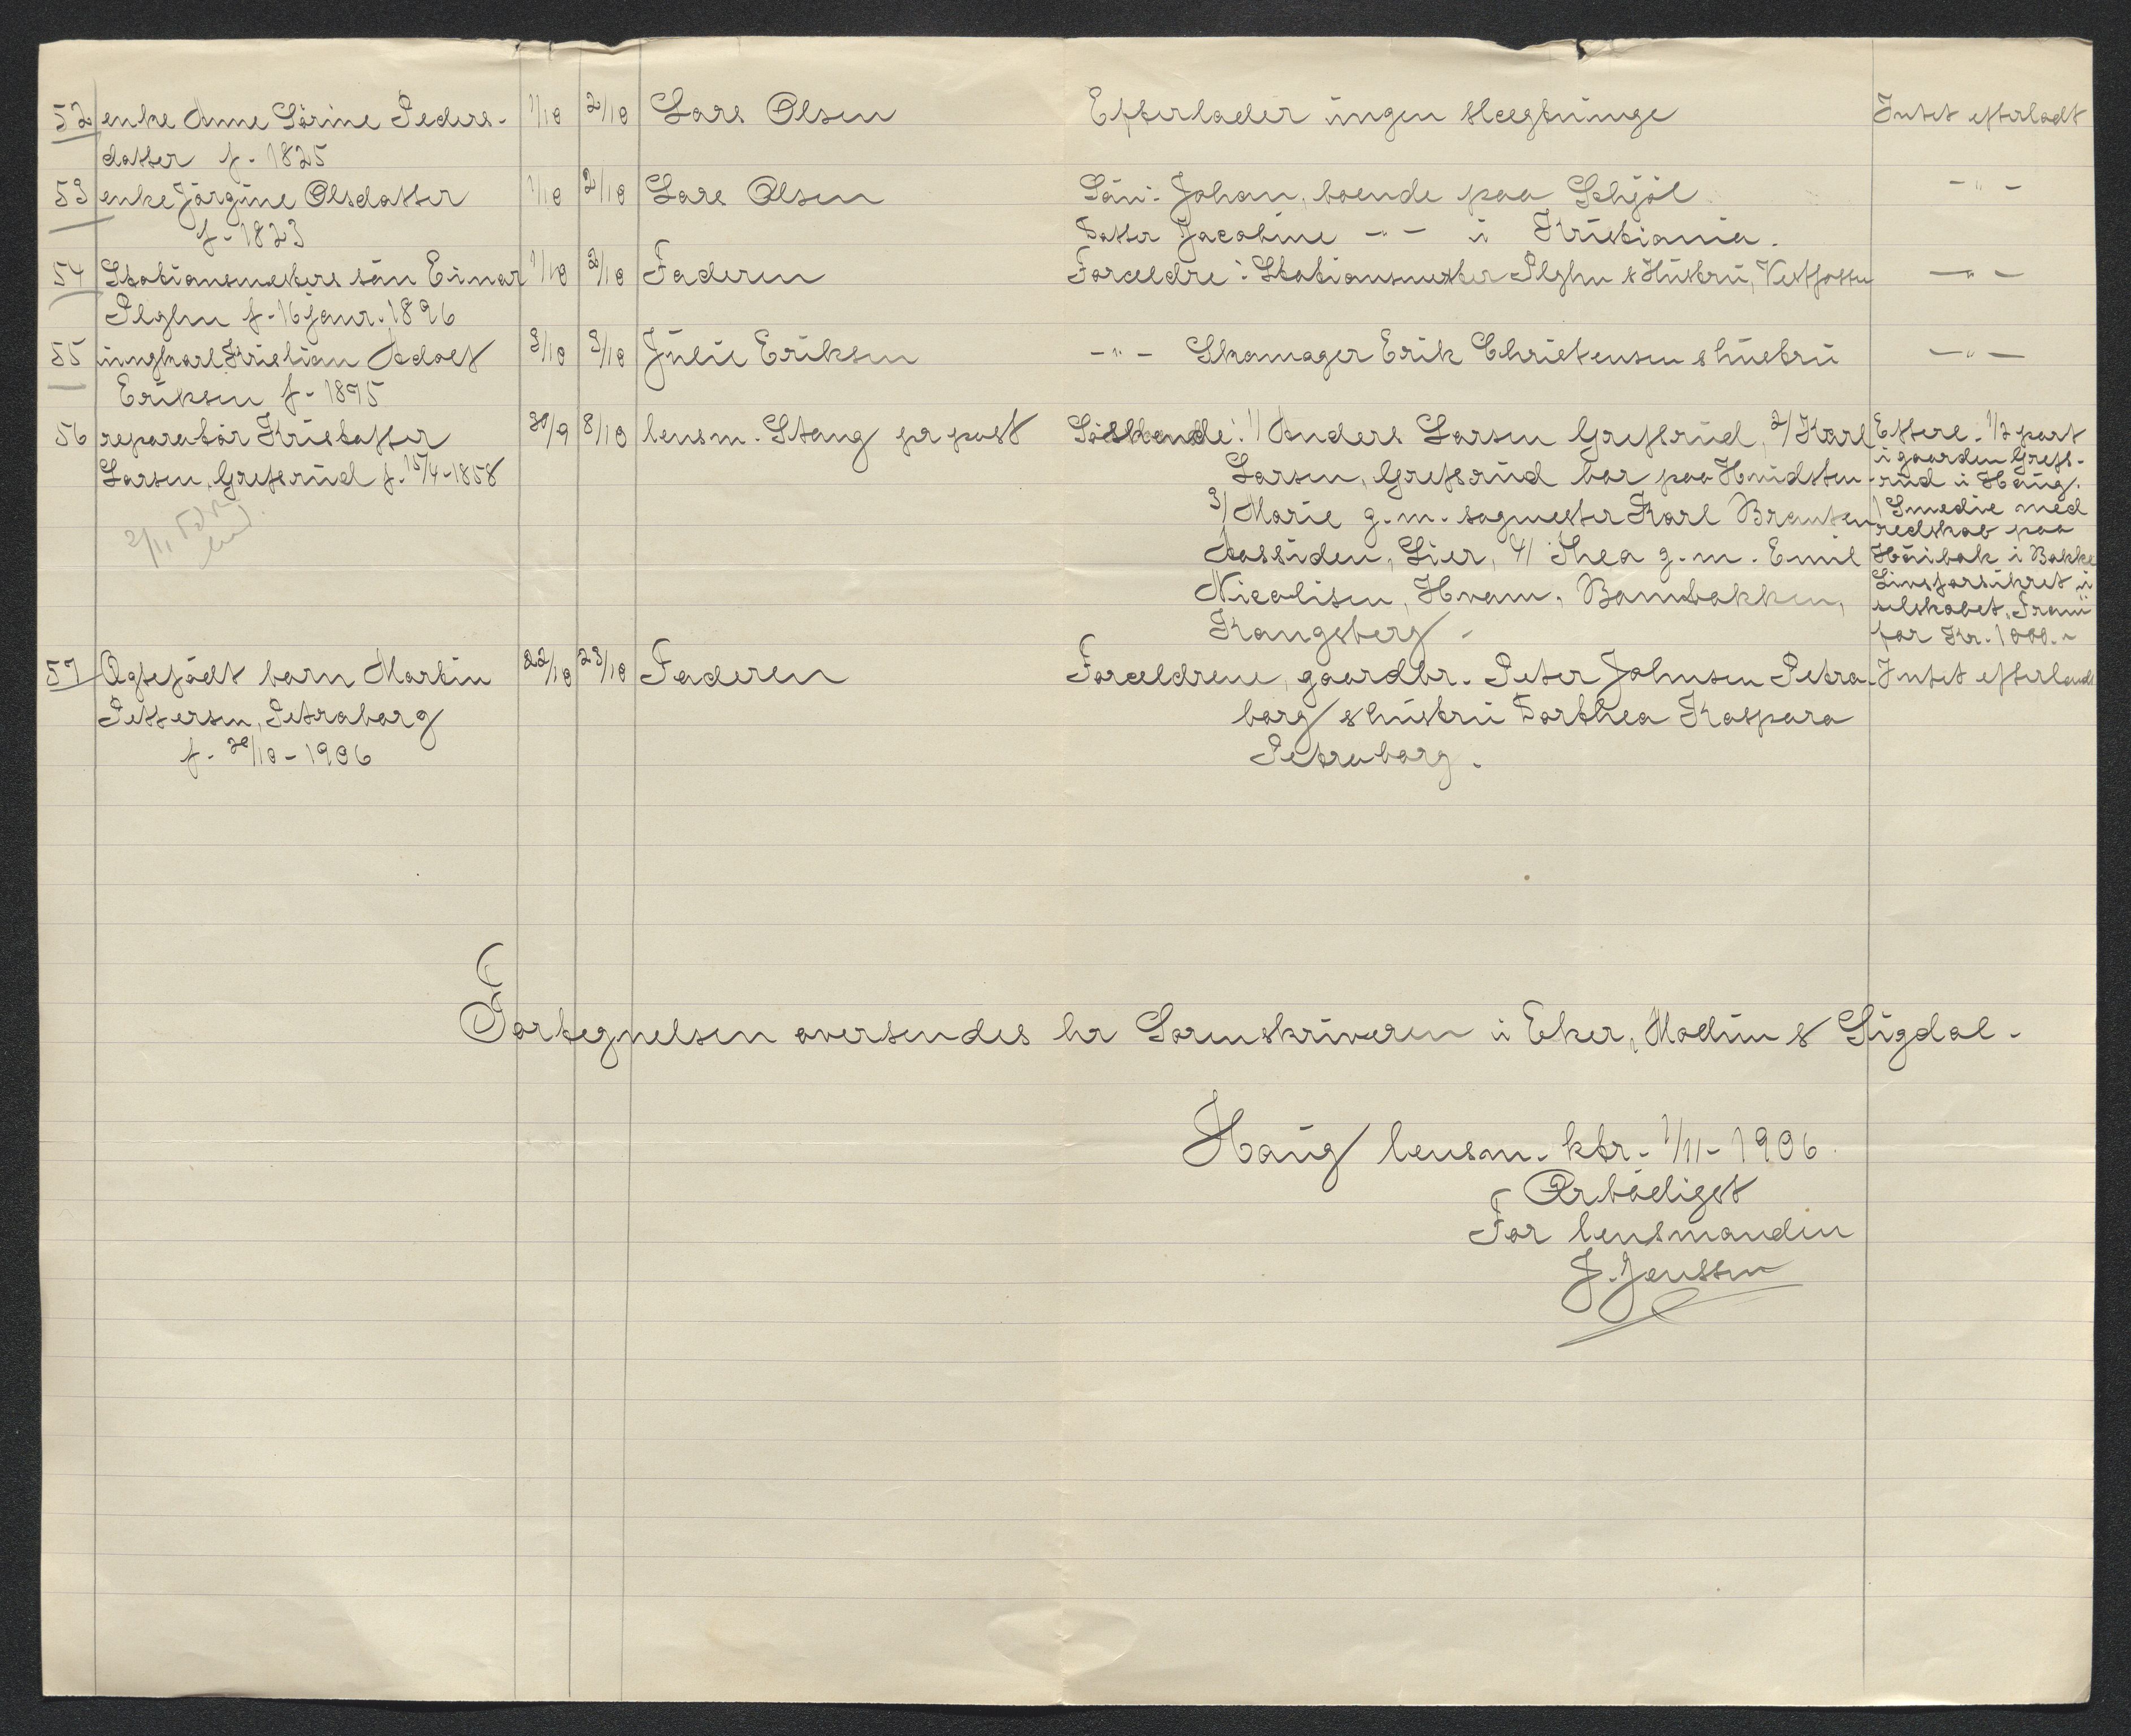 52 enke Anne Sörine Peders- 1/10 2/10 Lars Olsen Efterlader ingen slægtninge Intet efterladt
datter f. 1825
53 enke Jörgine Olsdatter 1/10 2/10 Lars Olsen Sön: Johan, boende paa Schjöl -"-
f. 1823 Datter Jacobine -"- i Kristiania.
54 Stationsmesters sön Einar 1/10 3/10 Faderen Forældre: Stationsmester & Hustru, Vestfossen -"-
f. 16 janr. 1896
55 ungkarl Kristian Adolf 3/10 3/10 Julie Eriksen -"- Skomager Erik Christensen & hustru -"-
Eriksen f. 1875
56 reparatör Kristoffer 30/9 8/10 lensm. Stang pr post Söskende: 1/ Anders Larsen Grefsrud, 2/ Karl Efterl. 1/2 part
Larsen, Grefsrud f. 15/4-1858 Larsen, Grefsrud bor paa Hvidsten i gaarden Grefs-
rud i Haug.
3/ Marie g.m. sagmester Karl Brautsen 1 Smedie med
redskab paa
2/11 Aassiden, Lier, 4/ Thea g.m. Emil Höibak i Bakke
Nicolisen, Hvam, Bambakken, Livsforsikret i
selskabet, Fram
Kongsberg. for Kr. 1000.-
57 Ægtefödt barn Martin 22/10 23/10 Faderen Forældrene, gaardbr. Peter Johnsen Petra- Intet efterladt
Pettersen, Petraborg borg & hustru Dorthea Kaspara
f. 20/10-1906 Petraborg.
Fortegnelsen oversendes hr Sorenskriveren i Eker, Modum & Sigdal.
Haug lensm. ktr. 1/11-1906.
Ærbödigst
For lensmanden
J. Jenssen